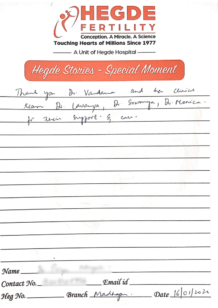 HEGDE
FERTILITY
Conception. A Miracle. A Science
Touching Hearts of Millions Since 1977
A Unit of Hegde Hospital
Hegde Stories - Special Moment
Thank you Dr Vandana and her Clinical
Team Dr Lavanya, Dr Sowmya, Dr Monica.
for their Support & care.
Name
Contact No. Email id
Heg No. Branch Madhapur Date 16/01/2020